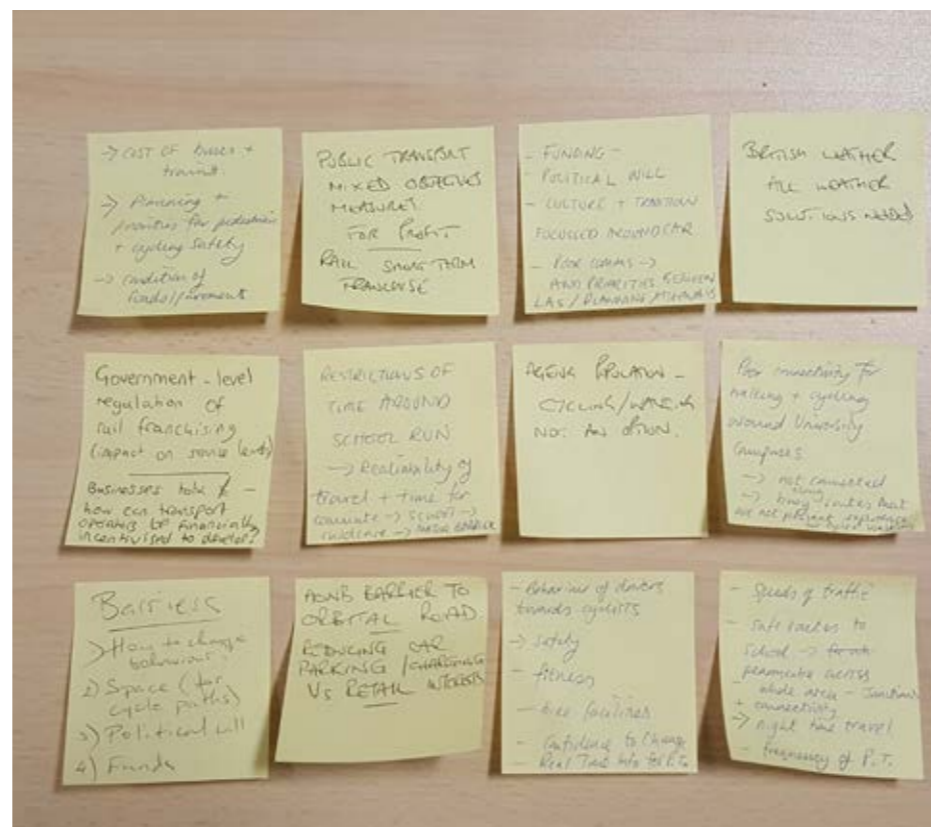 → COST OF buses +
trains.
→ Planning +
priorities for pedestrian
+ cycling safety
→ condition of
roads/pavements
PUBLIC TRANSPORT
MIXED OBJECTIVES
MEASURES
FOR PROFIT
RAIL SHORT TERM
FRANCHISE
- FUNDING -
- POLITICAL WILL
- CULTURE + TRADITION
FOCUSSED AROUND CAR
- POOR COMMS →
AND PRIORITIES BETWEEN
LAS / PLANNING /
BRITISH WEATHER
ALL WEATHER
SOLUTIONS NEEDED
Government-level
regulation of
rail franchising
(impact on service levels)
Businesses talk £ -
how can transport
operators be financially
incentivised to develop?
RESTRICTIONS OF
TIME AROUND
SCHOOL RUN
→
travel + time for
commute → SCHOOL →
→ BARRIER
AGEING POPULATION -
CYCLING/WALKING
NOT AN OPTION.
Poor connectivity for
walking + cycling
around University
Campuses
→ not connected
→ busy routes that
are not pleasant
Barriers
1) How to change
behaviour?
2) Space (for
cycle paths)
3) Political will
4) Funds
AONB BARRIER TO
ORBITAL ROAD.
REDUCING CAR
PARKING / CHARGING
VS RETAIL INTERESTS
- Behaviour of drivers
towards cyclists
→ safety
- fitness
- bike facilities
- Confidence to change
- Real Time Info for P.T.
- Speeds of traffic
- safe routes to
school →
across
whole area - Junctions
+ connectivity
→ night time travel
- frequency of P.T.